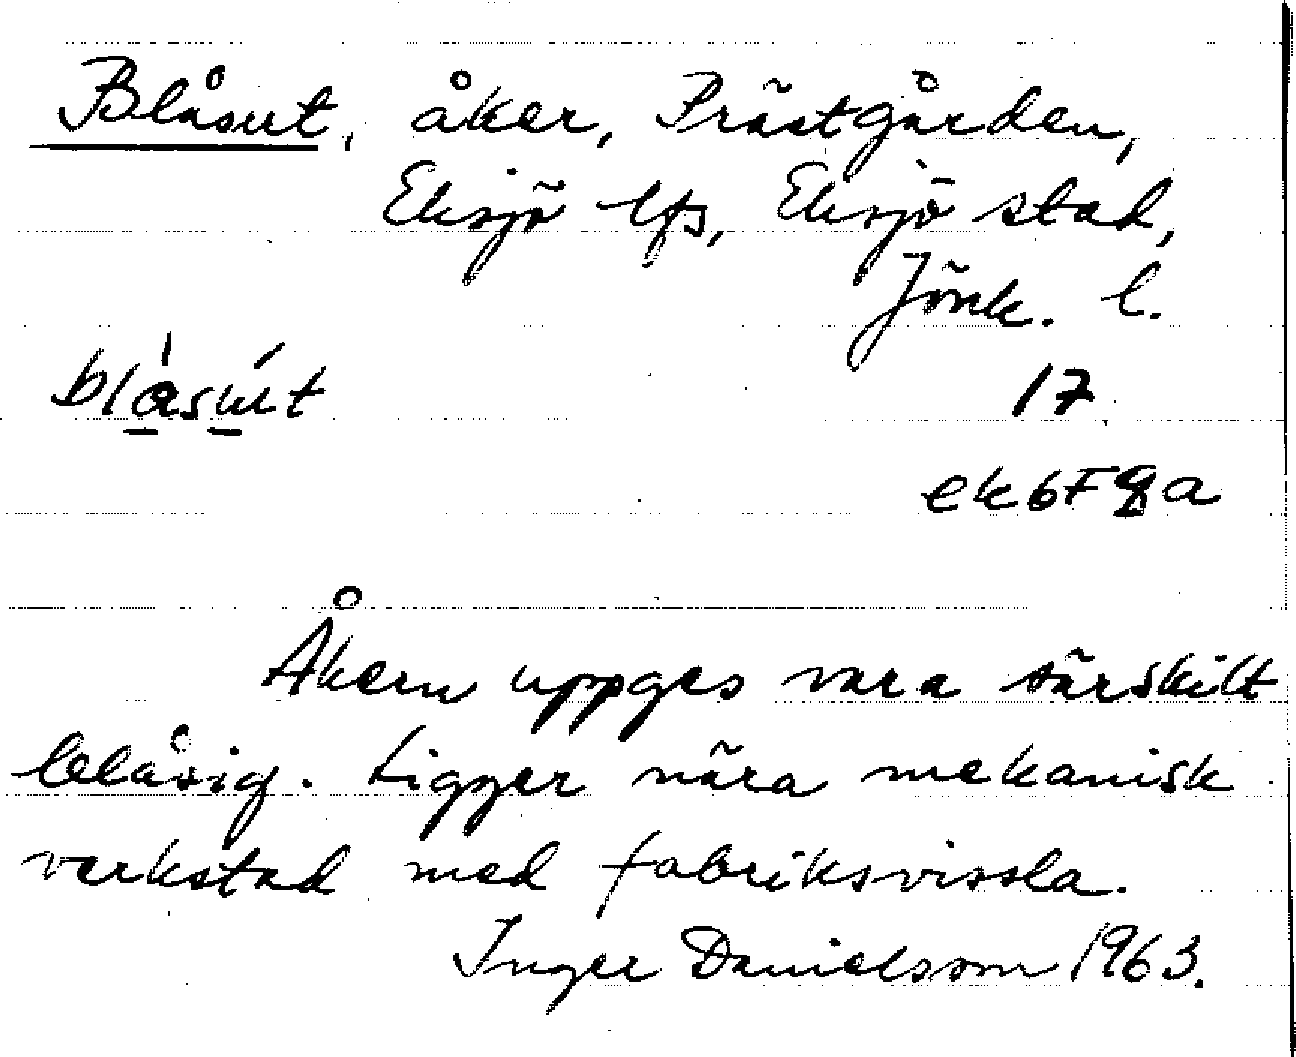 Blåsut, åker, Prästgården,
Eksjö lfs, Eksjö stad,
Jönk. l.
blåsút 17
ek 6 F 8 a
Åkern uppges vara särskilt
blåsig. Ligger nära mekanisk
verkstad med fabriksvissla.
Inger Danielsson 1963.